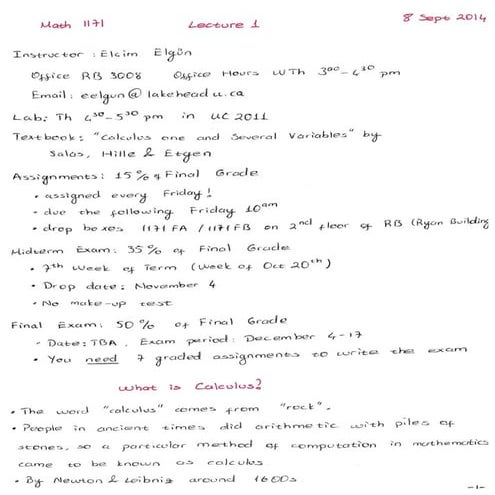 Math 1171 Lecture 1 8 Sept 2014
Instructor : Elcim Elgün
Office RB 3008 Office Hours WTh 3⁰⁰-4³⁰ pm
Email: eelgun@lakeheadu.ca
Lab: Th 4³⁰-5³⁰ pm in UC 2011
Textbook: "Calculus one and Several Variables" by
Salas, Hille & Etgen
Assignments: 15% of Final Grade
• assigned every Friday!
• due the following Friday 10ᵃᵐ
• drop boxes 1171 FA / 1171 FB on 2ⁿᵈ floor of RB (Ryan Building
Midterm Exam: 35% of Final Grade
• 7ᵗʰ week of Term (week of Oct 20ᵗʰ)
• Drop date: November 4
• No make-up test
Final Exam: 50% of Final Grade
• Date: TBA, Exam period: December 4-17
• You need 7 graded assignments to write the exam
What is Calculus?
• The word "calculus" comes from "rock".
• People in ancient times did arithmetic with piles of
stones, so a particular method of computation in mathematics
came to be known as calculus
• By Newton & Leibniz around 1600s
-1-